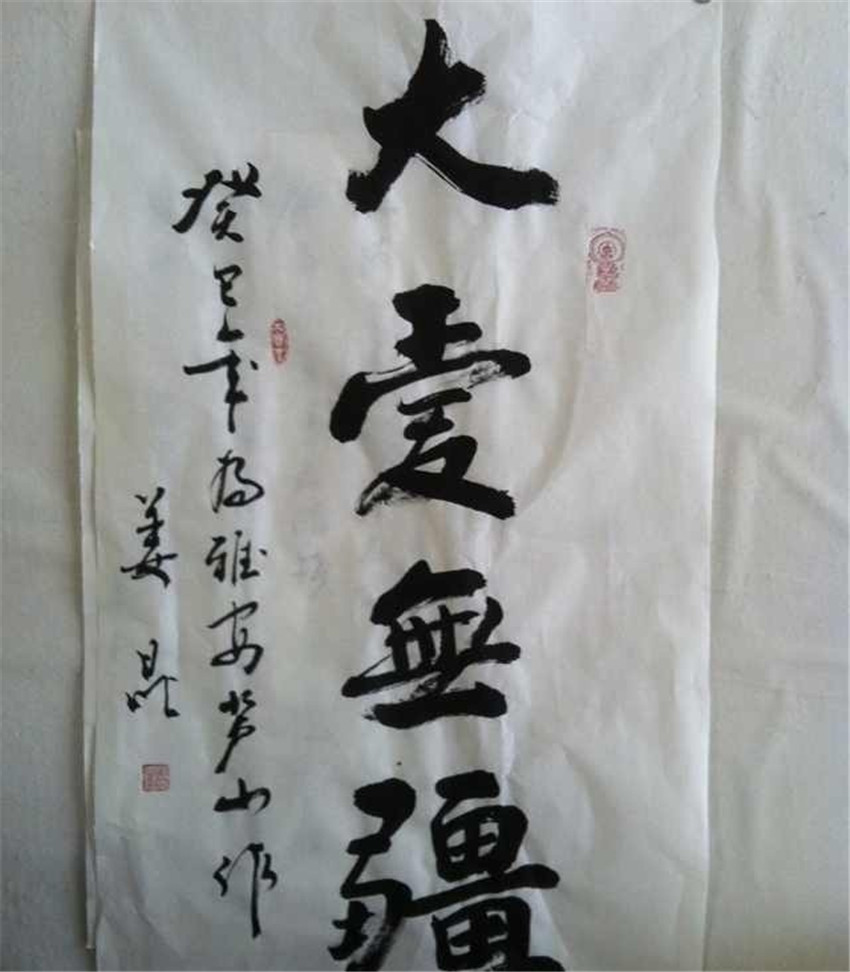 大爱無疆
癸巳年为雅安芦山作
姜昆